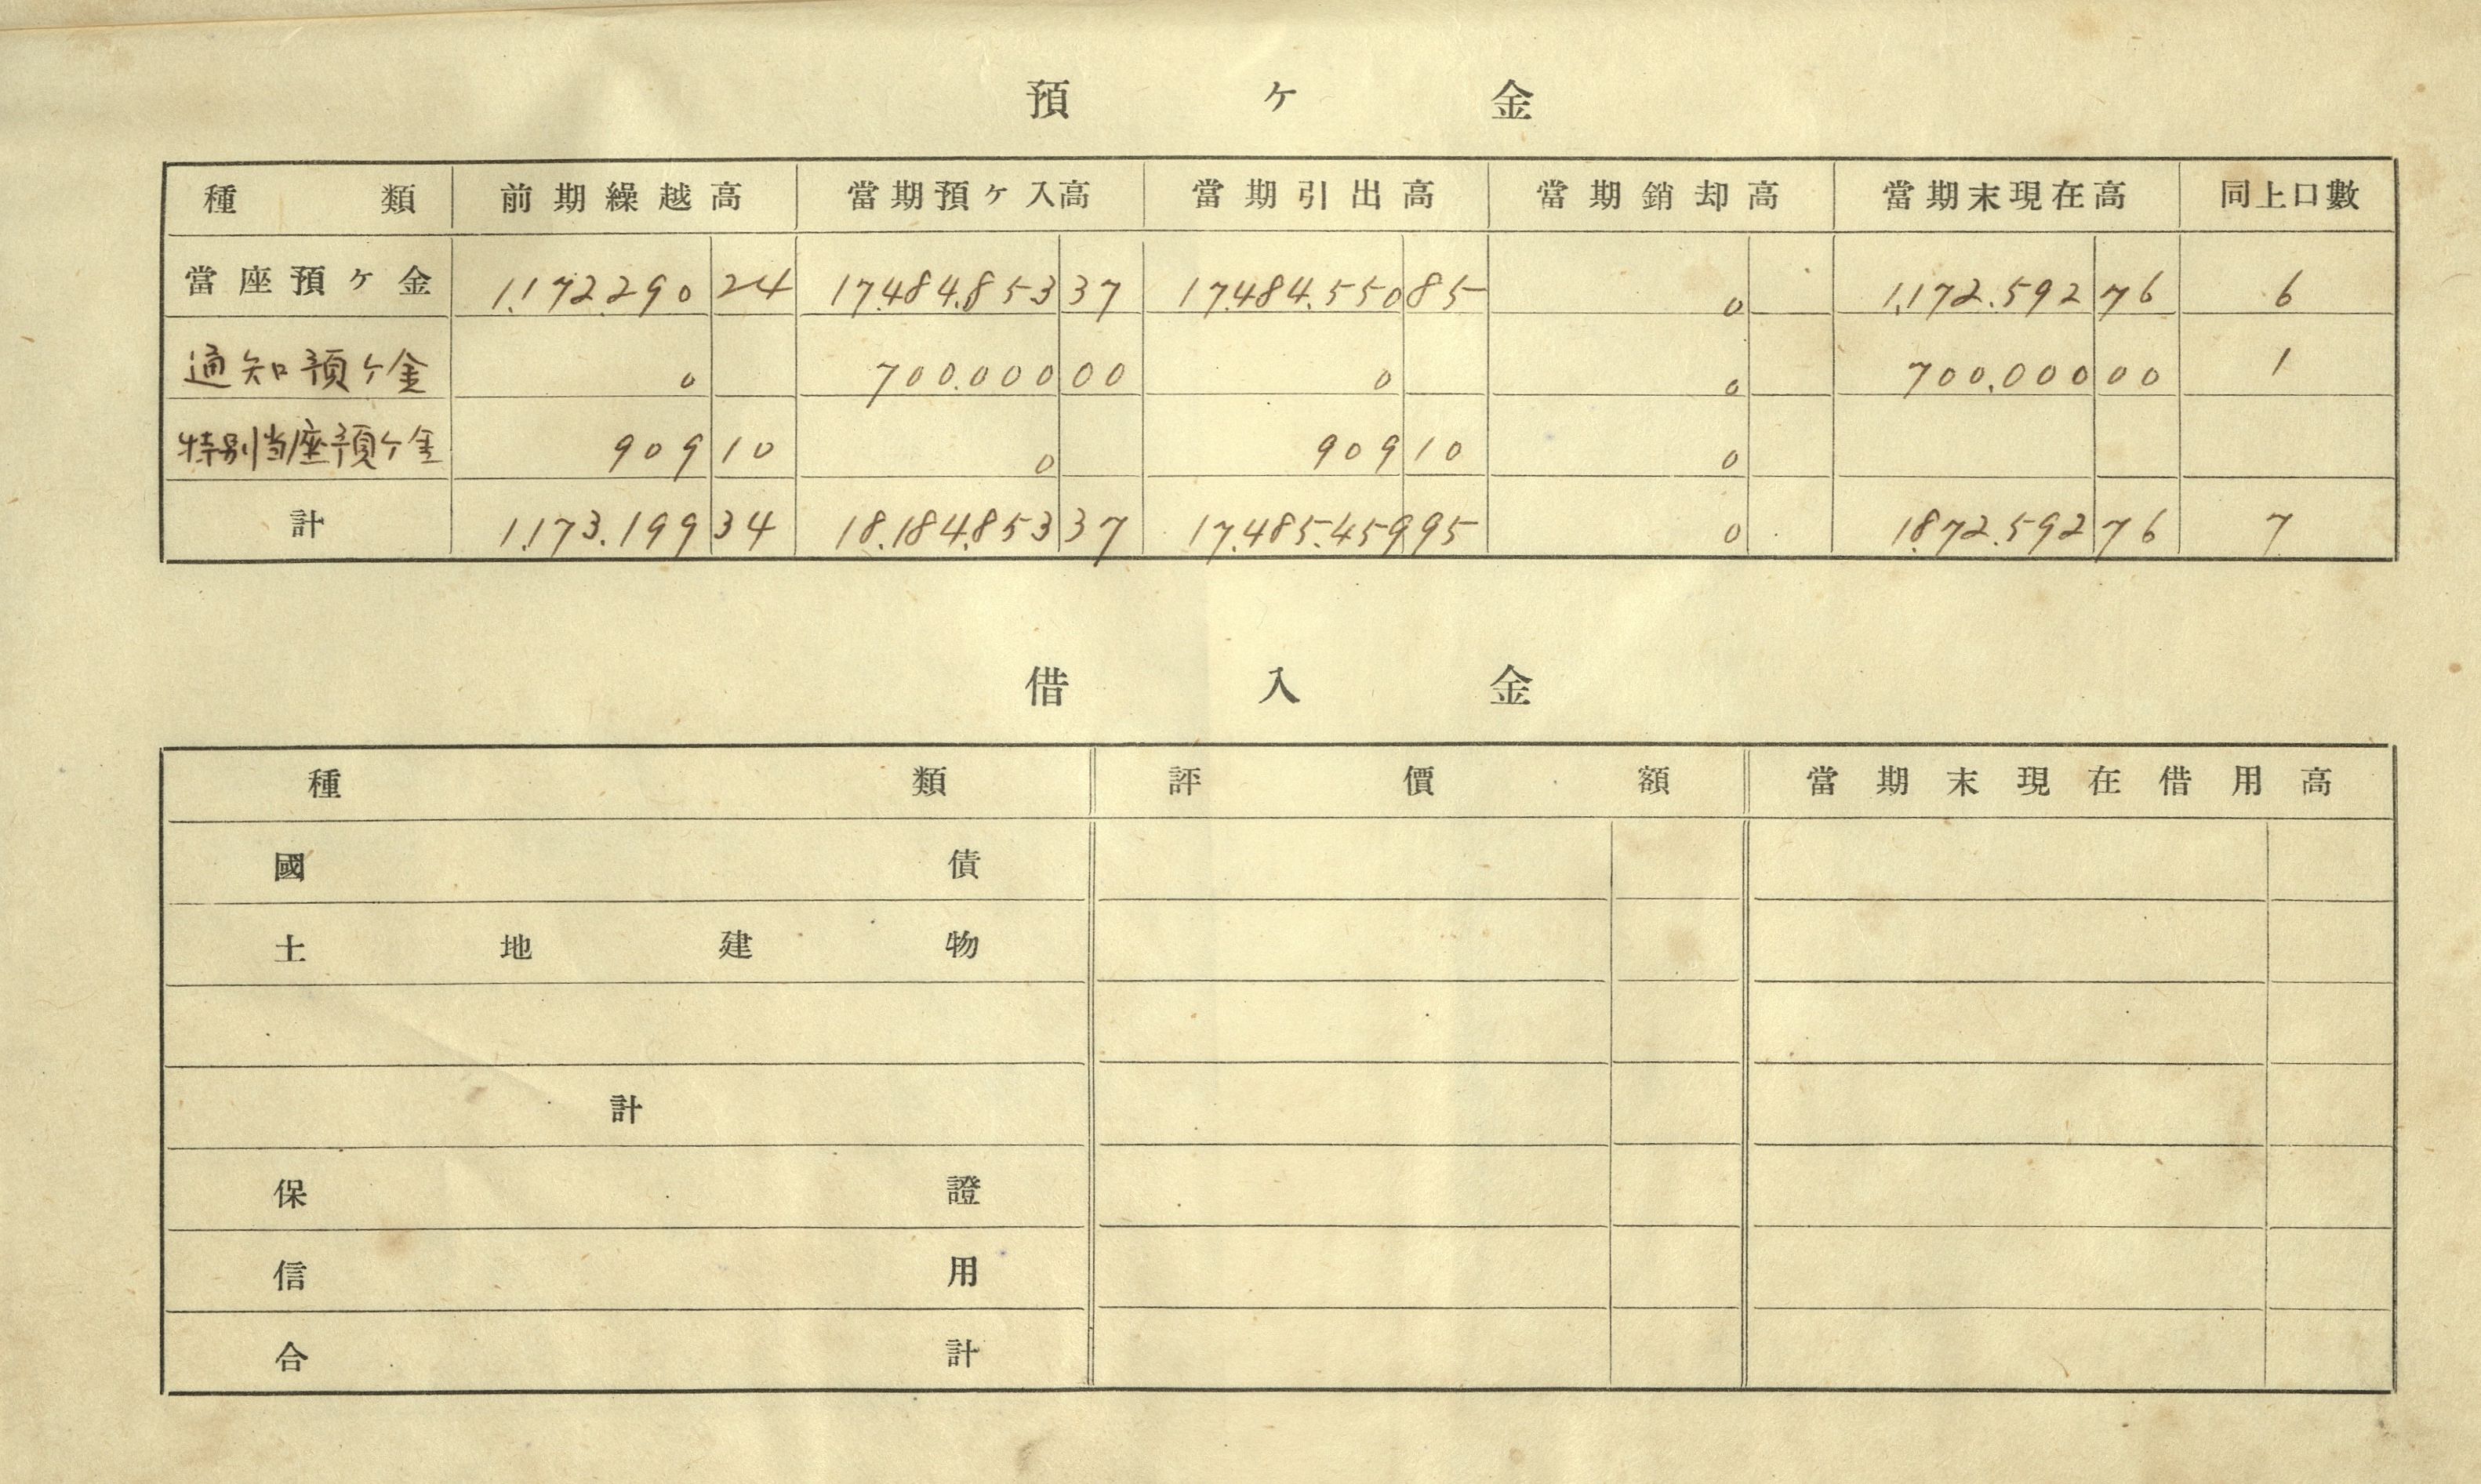 預ケ金
種類 前期繰越高 當期預ケ入高 當期引出高 當期銷却高 當期末現在高 同上口數
當座預ケ金 1,172.290 24 17.484.853 37 17.484.550 85 0 1,172.592 76 6
通知預ケ金 0 700.000 00 0 0 700.000 00 1
特別当座預ケ金 909 10 0 909 10 0
計 1.173.199 34 18.184.853 37 17.485.459 95 0 1.872.592 76 7
借入金
種類 評價額 當期末現在借用高
國債
土地建物
計
保證
信用
合計